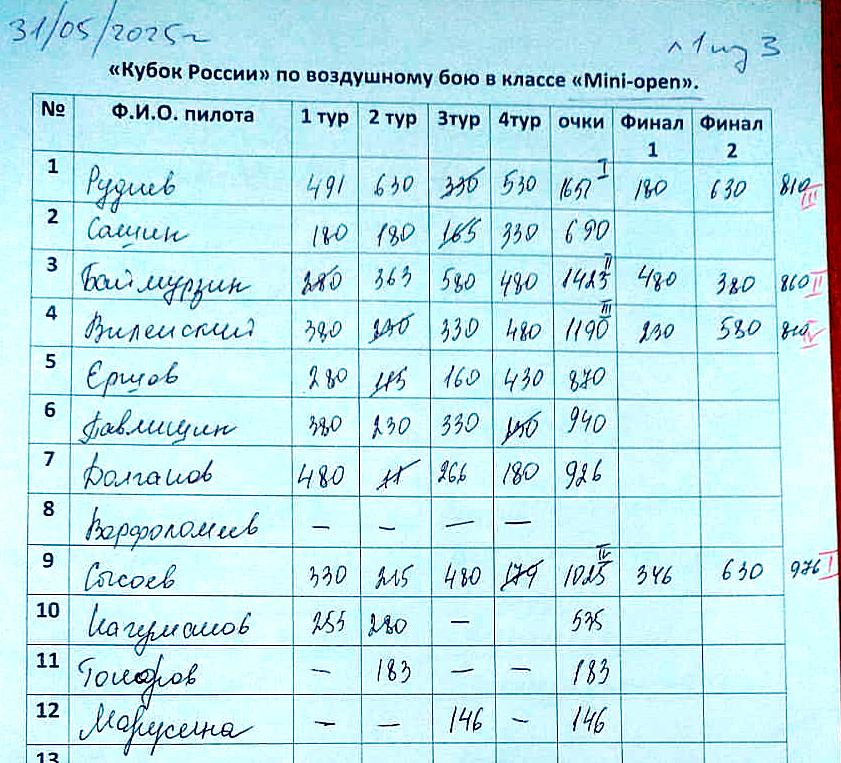 31/05/2025г
л 1 из 3
«Кубок России» по воздушному бою в классе «Mini-open».
№ Ф.И.О. пилота 1 тур 2 тур 3тур 4тур очки Финал 1 Финал 2
1 Рудиев 491 630 330 530 1651 I 180 630 810 III
2 Сашин 180 180 165 330 690
3 Баймурзин 280 363 580 480 1423 II 480 380 860 II
4 Виленский 380 230 330 480 1190 III 230 580 810 IV
5 Ершов 280 115 160 430 870
6 Павлищин 380 230 330 150 940
7 Долганов 480 11 266 180 926
8 Варфоломеев — — — —
9 Сысоев 330 215 480 179 1025 IV 346 630 976 I
10 Нагуманов 255 280 — 535
11 — 183 — — 183
12 Марусина — — 146 — 146
13